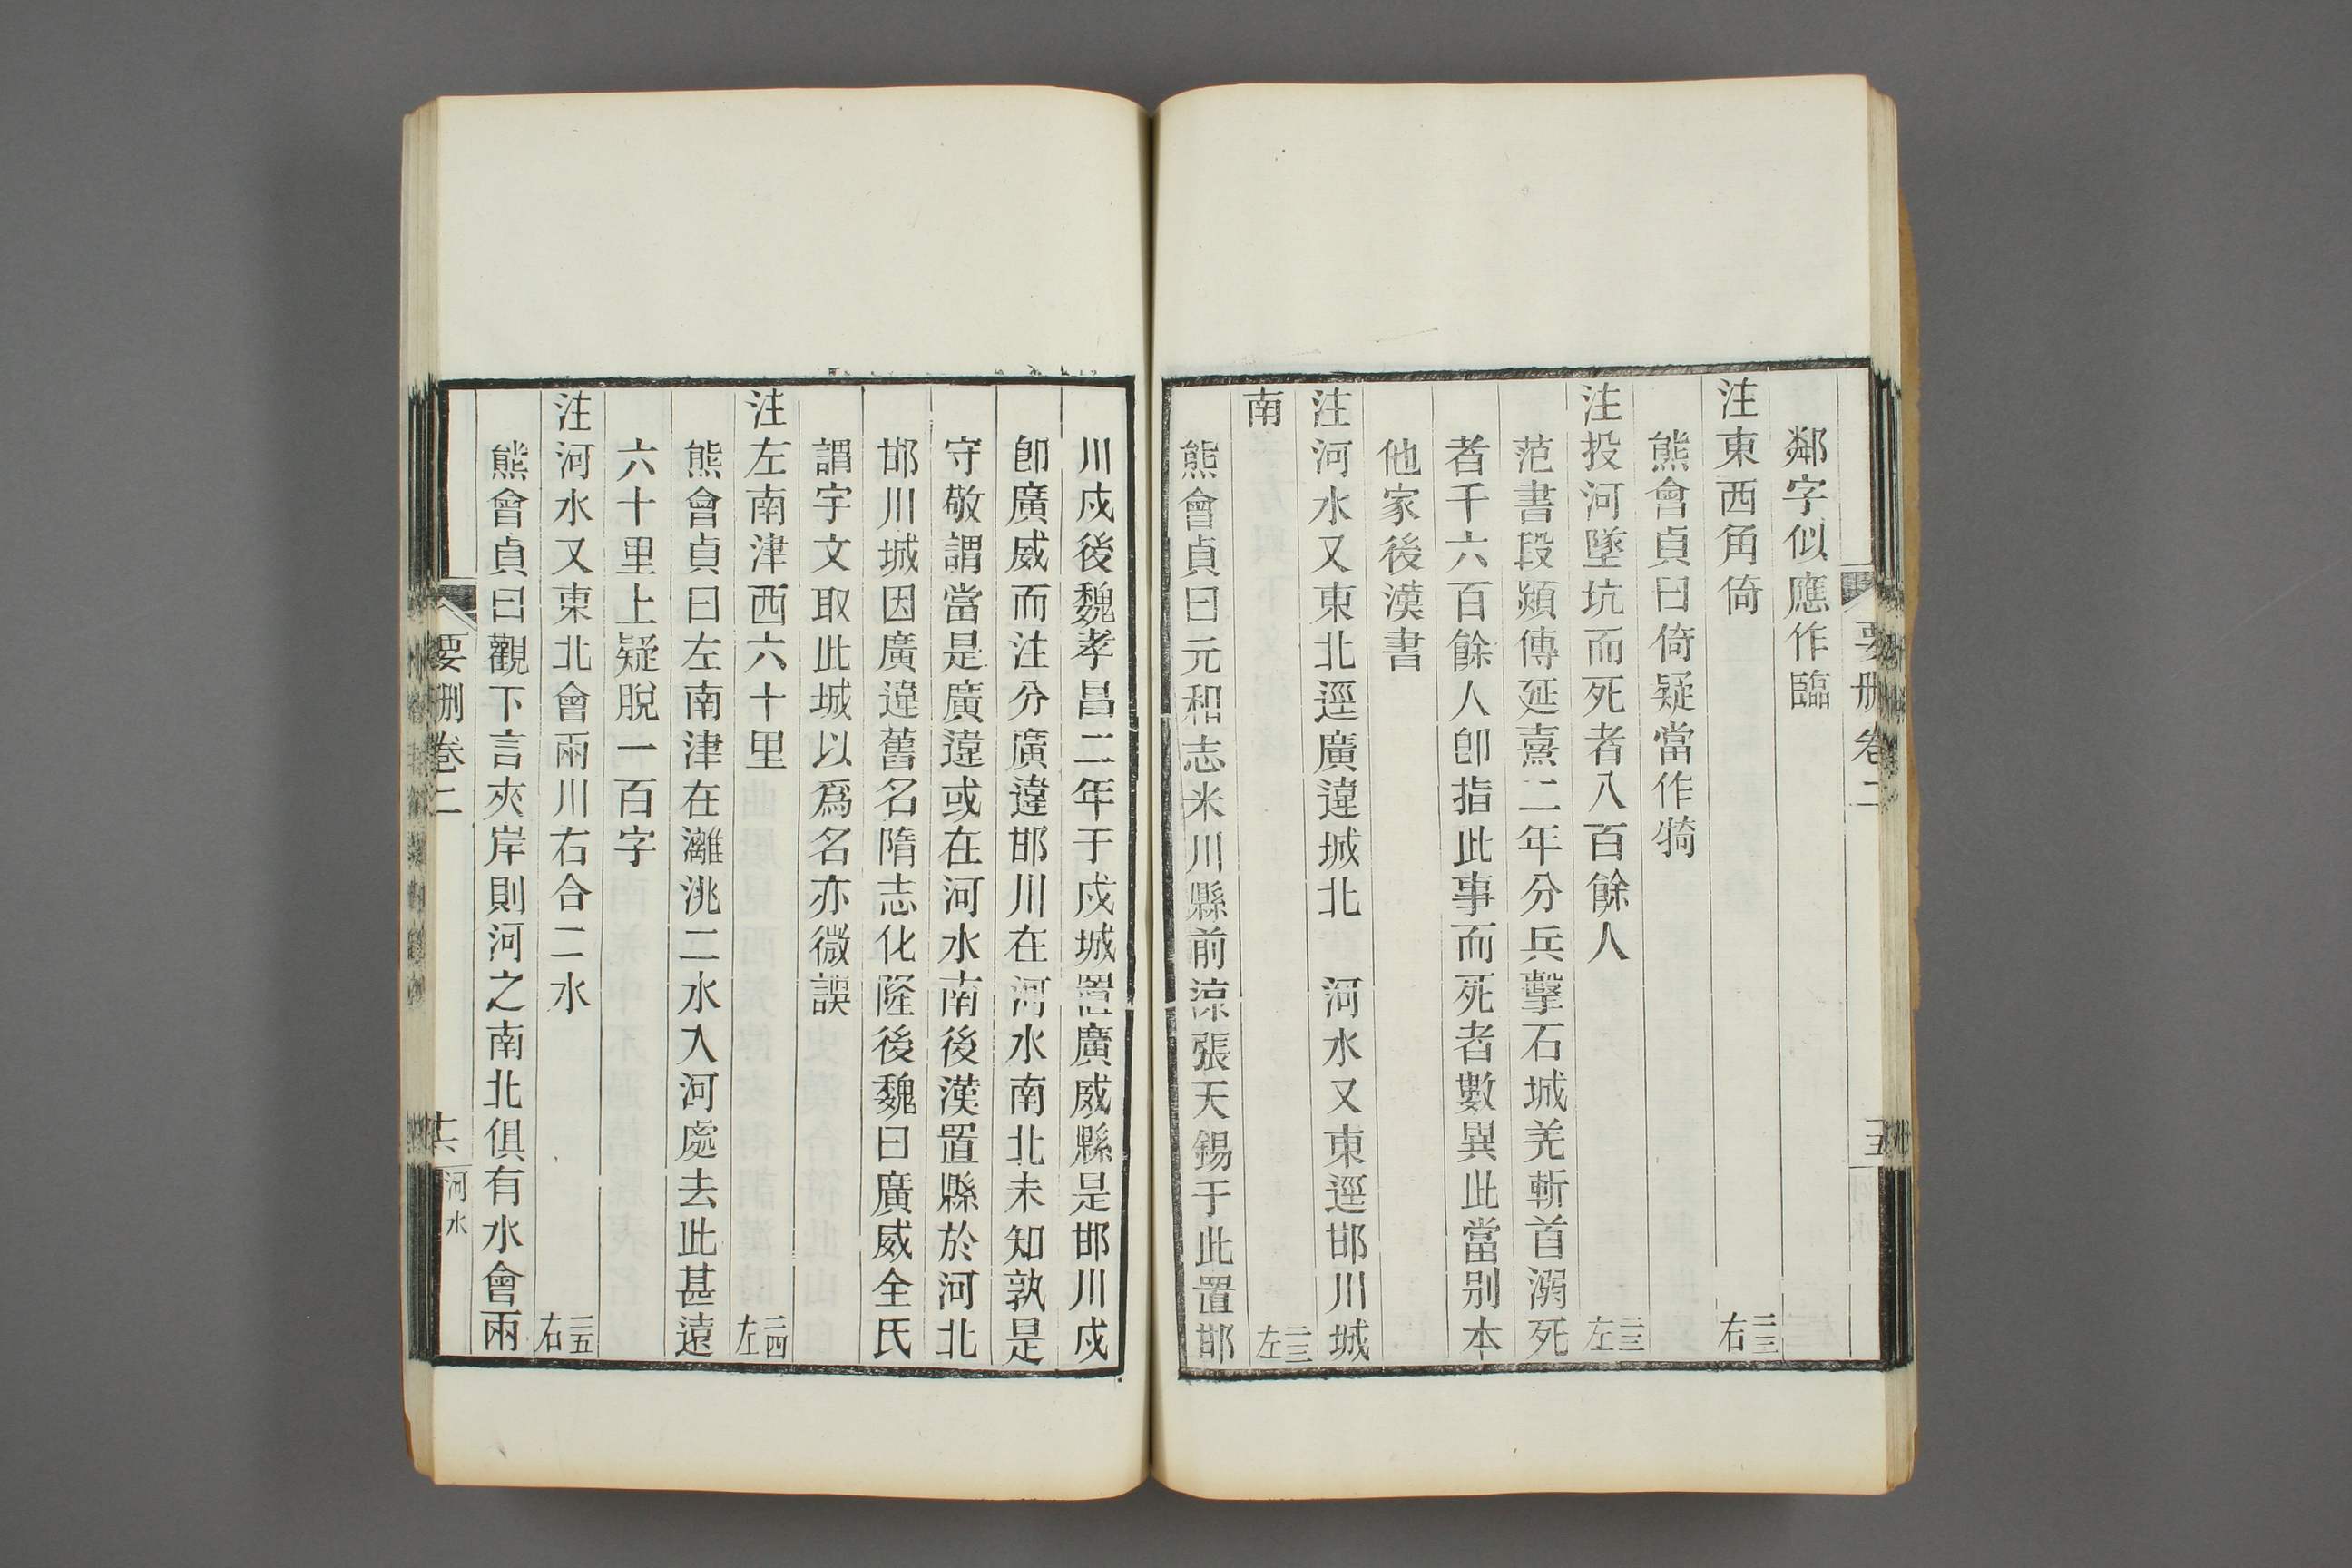 要刪卷二
鄰字似應作臨
注東西角倚 二三右
熊會貞曰倚疑當作犄
注投河墜坑而死者八百餘人 二三左
范書段熲傳延熹二年分兵擊石城羌斬首溺死
者千六百餘人卽指此事而死者數異此當別本
他家後漢書
注河水又東北逕廣違城北 河水又東逕邯川城
南 二三左
熊會貞曰元和志米川縣前涼張天錫于此置邯
川戍後魏孝昌二年于戍城置廣威縣是邯川戍
卽廣威而注分廣違邯川在河水南北未知孰是
守敬謂當是廣違或在河水南後漢置縣於河北
邯川城因廣違舊名隋志化隆後魏曰廣威全氏
謂宇文取此城以爲名亦微誤
注左南津西六十里 二四左
熊會貞曰左南津在灕洮二水入河處去此甚遠
六十里上疑脫一百字
注河水又東北會兩川右合二水 二五右
熊會貞曰觀下言夾岸則河之南北俱有水會兩
要刪卷二
河水